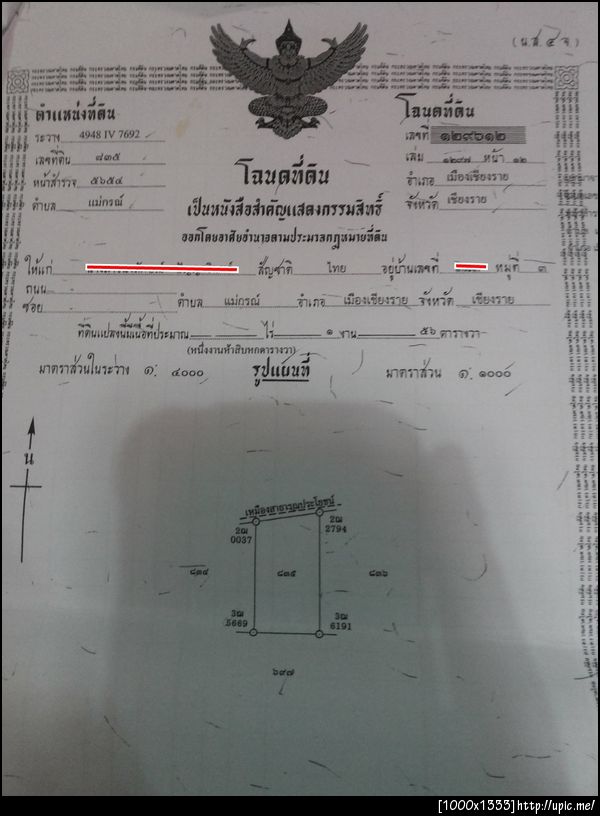 (น.ส. ๔ จ)
ตำแหน่งที่ดิน
ระวาง 4948 IV 7692
เลขที่ดิน ๘๓๕
หน้าสำรวจ ๕๖๕๔
ตำบล แม่กรณ์
โฉนดที่ดิน
เลขที่ ๑๒๙๖๑๒
เล่ม ๑๒๙๗ หน้า ๑๒
อำเภอ เมืองเชียงราย
จังหวัด เชียงราย
โฉนดที่ดิน
เป็นหนังสือสำคัญแสดงกรรมสิทธิ์
ออกโดยอาศัยอำนาจตามประมวลกฎหมายที่ดิน
ให้แก่ สัญชาติ ไทย อยู่บ้านเลขที่ หมู่ที่ ๓
ถนน
ซอย ตำบล แม่กรณ์ อำเภอ เมืองเชียงราย จังหวัด เชียงราย
ที่ดินแปลงนี้มีเนื้อที่ประมาณ ไร่ ๑ งาน ๕๖ ตารางวา
(หนึ่งงานห้าสิบหกตารางวา)
มาตราส่วนในระวาง ๑: ๔๐๐๐ รูปแผนที่ มาตราส่วน ๑: ๑๐๐๐
น
เหมืองสาธารณประโยชน์
2ฌ 2ฌ
0037 2794
๘๓๔ ๘๓๕ ๘๓๖
3ฌ 3ฌ
5669 6191
๖๙๗
[1000x1333]http://upic.me/